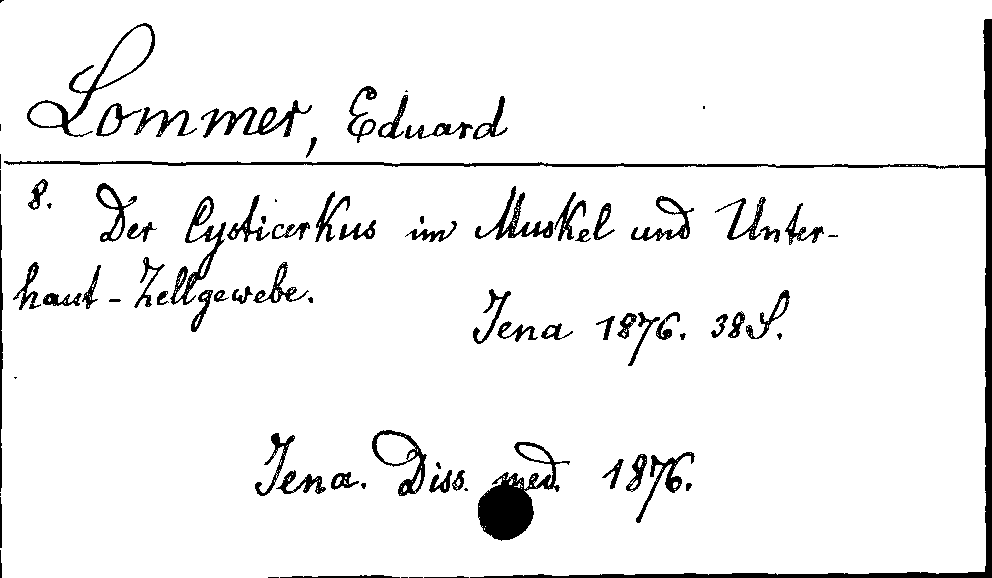 Lommer, Eduard
8. Der Cysticerkus im Muskel und Unter-
haut-Zellgewebe.
Jena 1876. 38 S.
Jena. Diss. med. 1876.